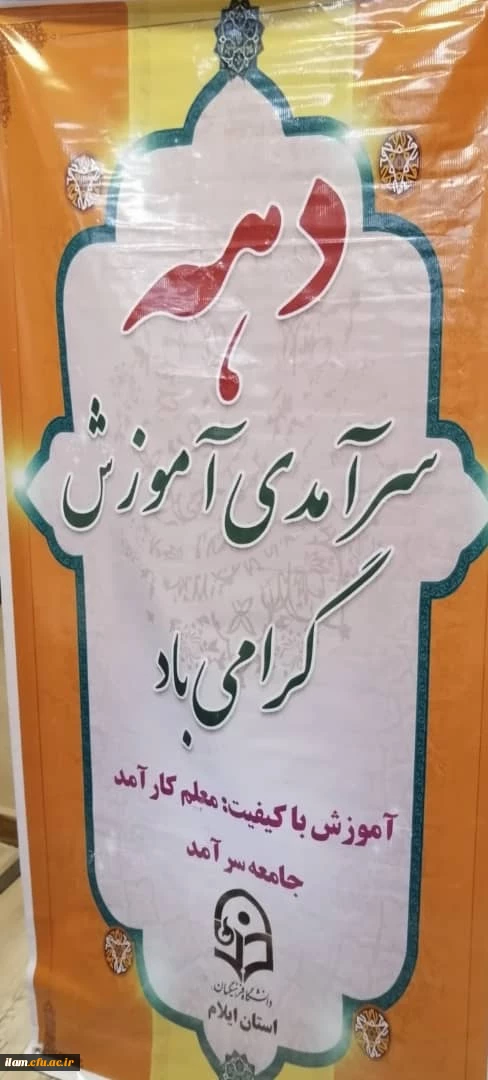 دهه
سرآمدی آموزش
گرامی باد
آموزش با کیفیت: معلم کارآمد
جامعه سرآمد
دانشگاه فرهنگیان
استان ایلام
ilam.cfu.ac.ir